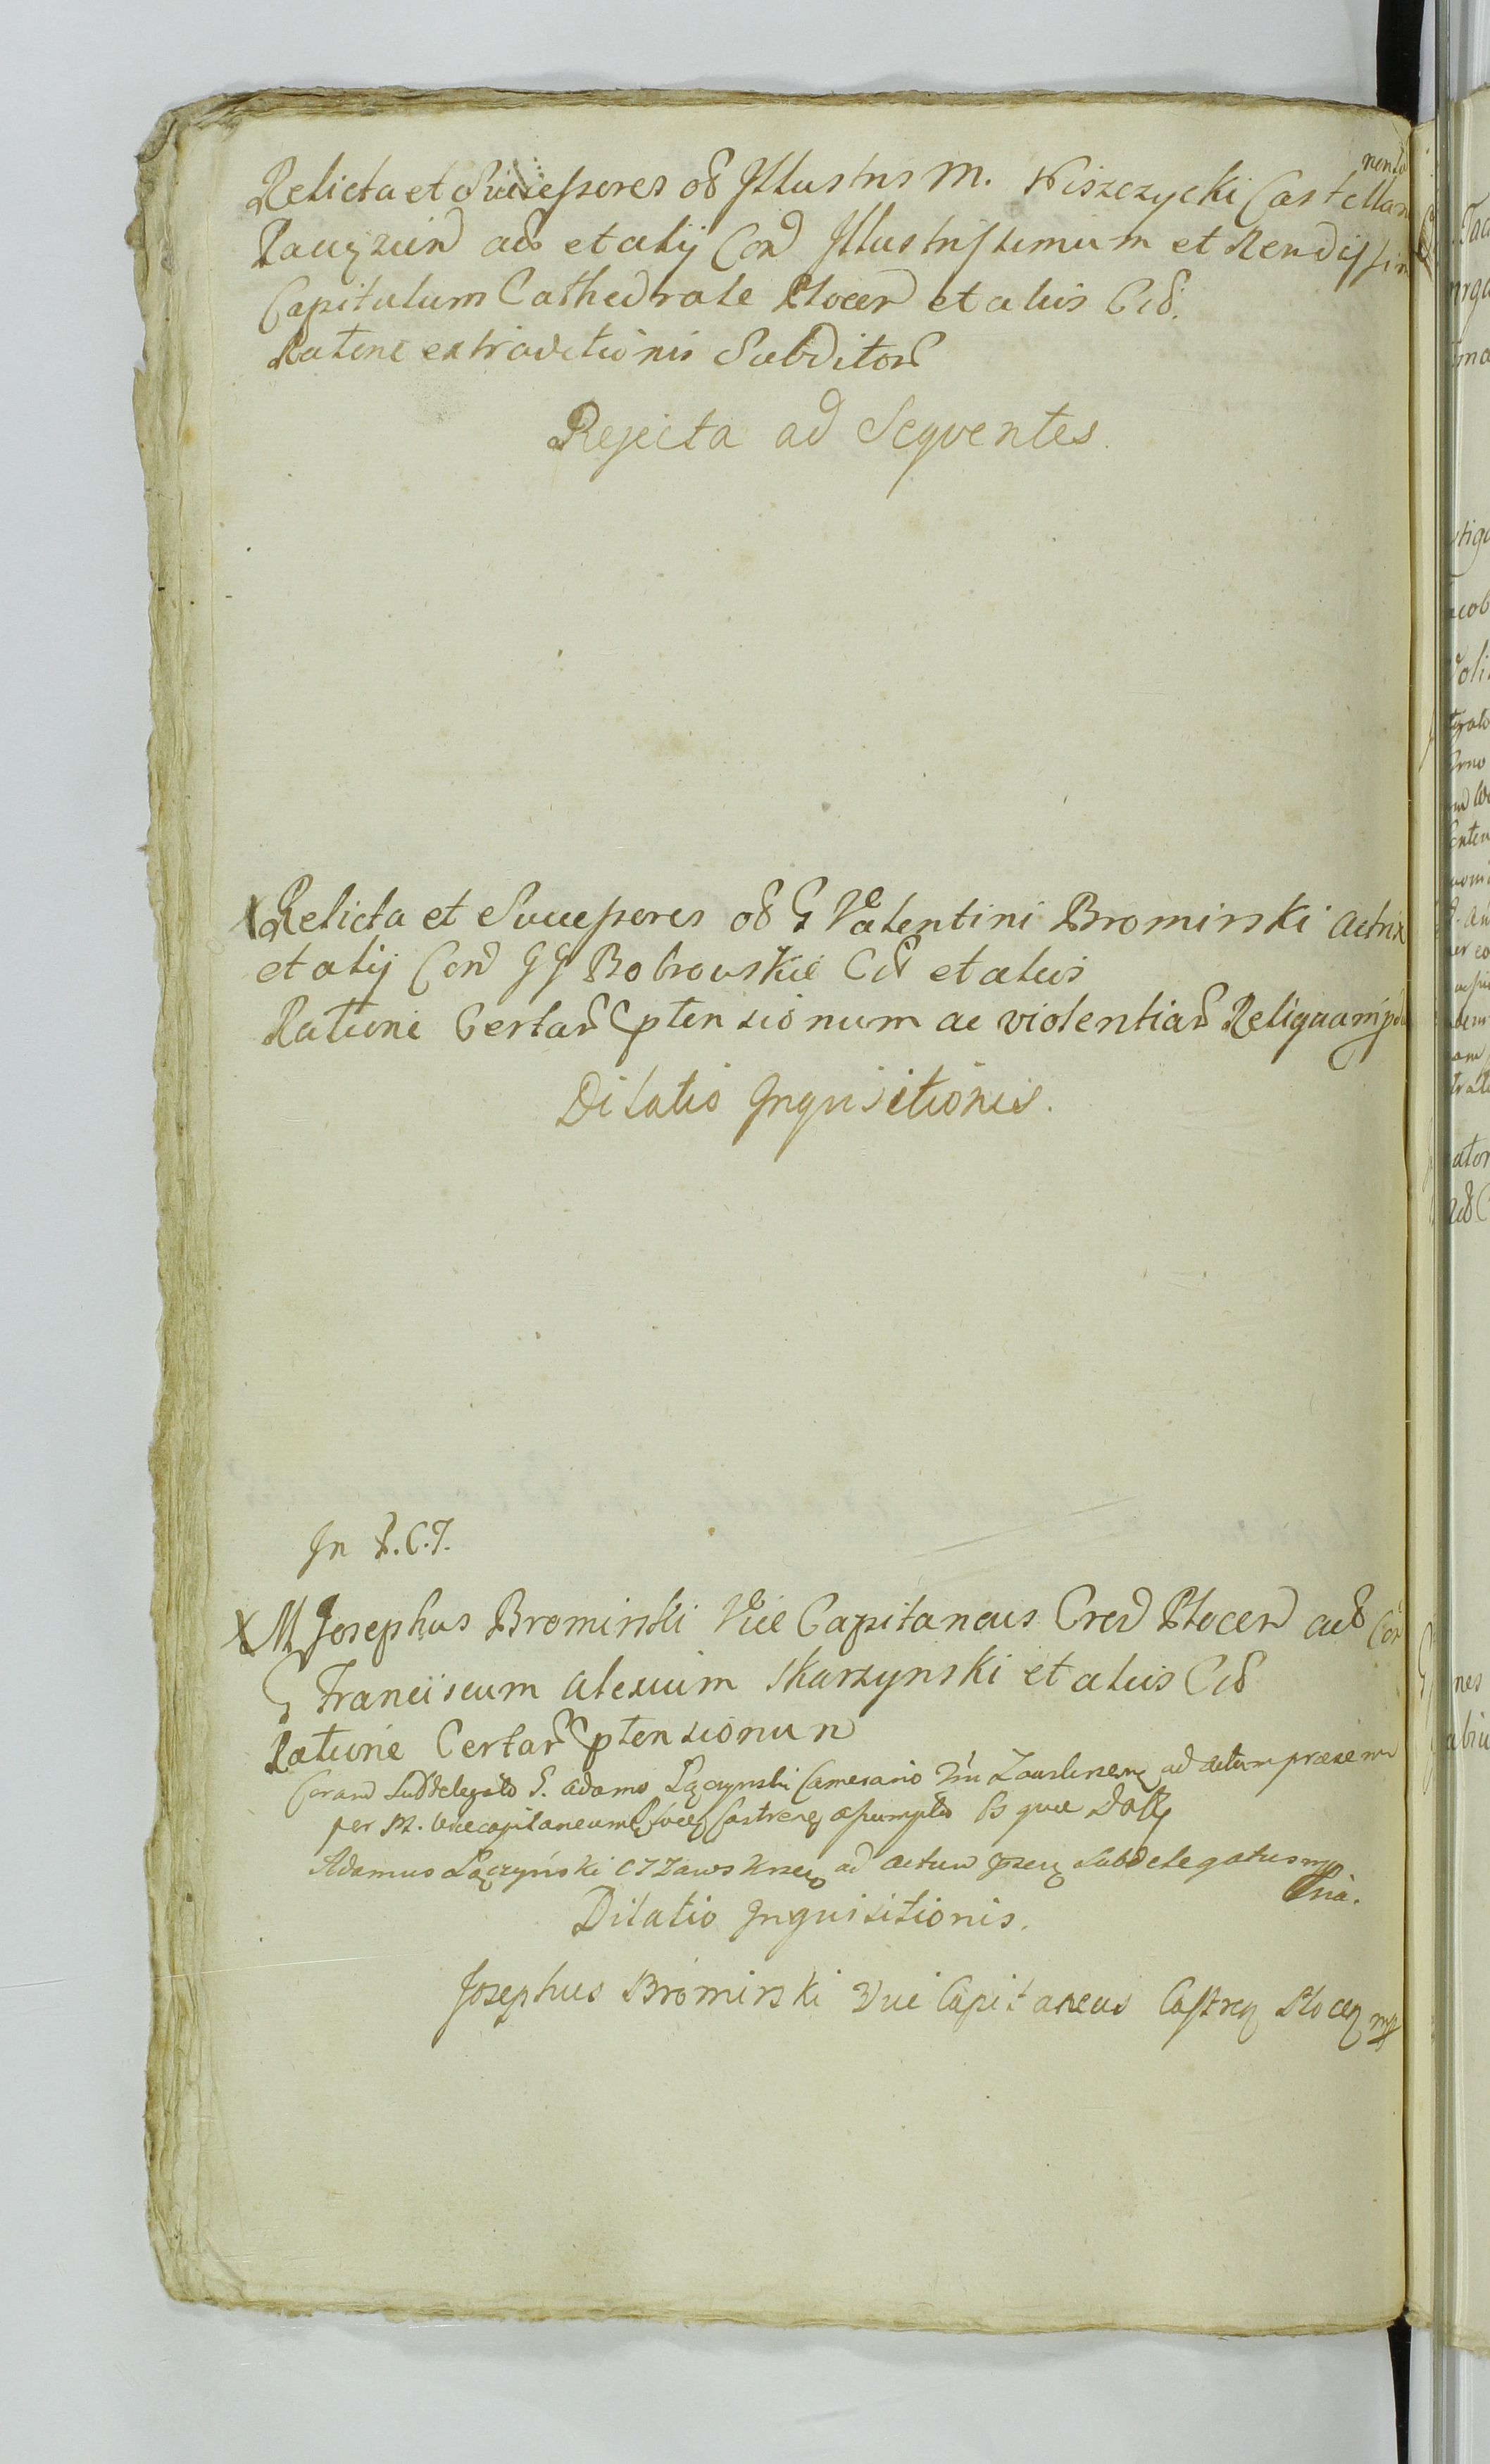 Relicta et Successores oδ Illustris M. Niszczycki Castellan
Raciązien aδ et alij Con Illustrissimum et Rendissim
Capitulum Cathedrale Plocen et alios Citδ.
Ratione extraditionis Subditor
Rejecta ad Seqventes.
X Relicta et Successores oδ G Valentini Bromirski actrix
et alij Con GG Bobrowskie Citδ et alios
Ratione Certar Pptensionum ac violentiar Religuam
Dilatio Inquisitionis.
In T.C.T.
X M Josephus Bromirski Vice Capitaneus Cred Plocen actδ Con
G Franciscum Alexium Skarzynski et alios Citδ
Ratione Certar Pptensionum
Coram Subdelegato G. Adamo Łączynski Camerario Zawskrzen ad actum præsen
per M. Vicecapitaneum Plocen Castren assumpto
Adamus Łączyński CT Zawskrzen ad actum Pzen Subdelegatus mp.
Dilatio Inquisitionis.
Josephus Bromirski Vice Capitaneus Castren Plocen mp